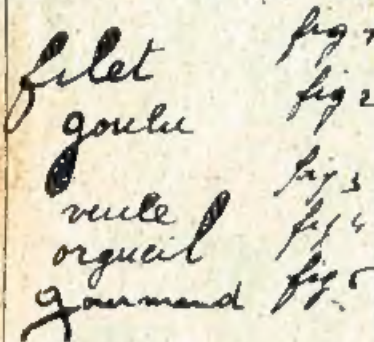 filet fig 1
goulu fig 2
fig 3
veule fig 4
orgueil fig 5
gourmand